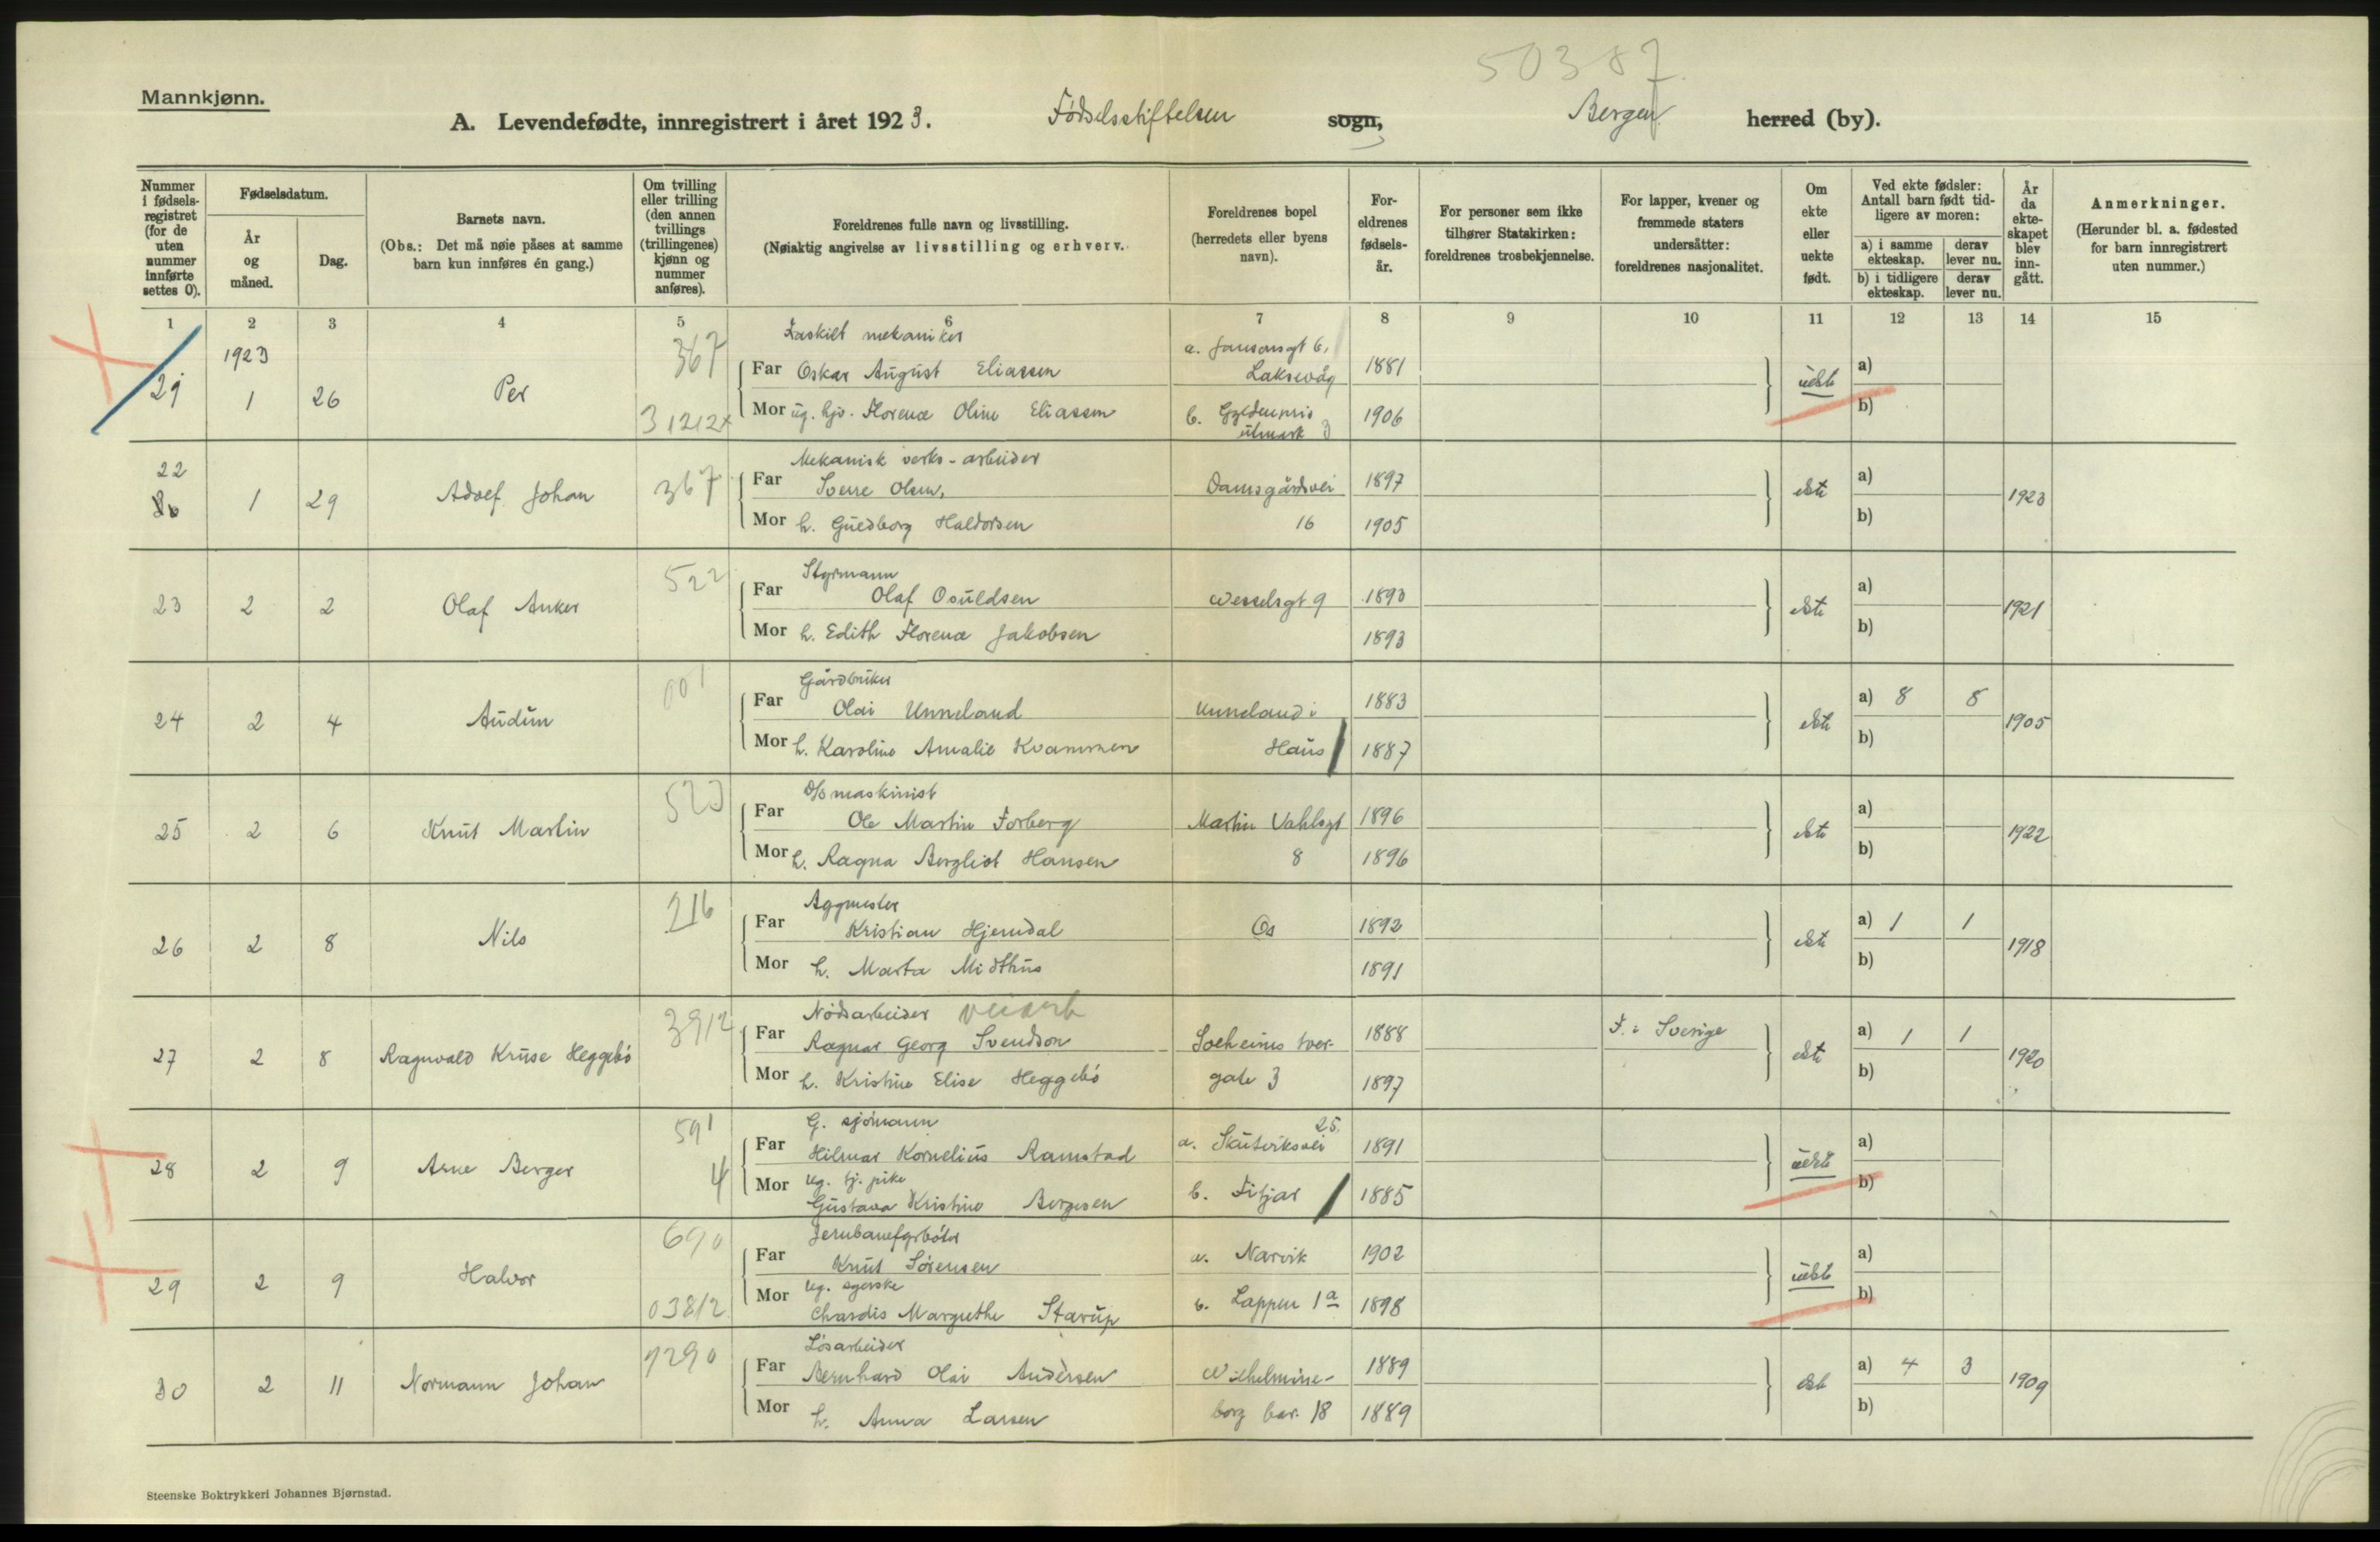 50387.
Mannkjønn.
A. Levendefødte, innregistrert i året 1923. Fødselsstiftelsen sogn, Bergen herred (by).
Nummer i fødselsregistret (for de uten nummer innførte settes 0).
Fødselsdatum.
År og måned.
Dag.
Barnets navn.
(Obs.: Det må nøie påses at samme barn kun innføres én gang.)
Om tvilling eller trilling (den annen tvillings (trillingenes) kjønn og nummer anføres).
Foreldrenes fulle navn og livsstilling.
(Nøiaktig angivelse av livsstilling og erhverv.)
Foreldrenes bopel (herredets eller byens navn).
Foreldrenes fødselsår.
For personer som ikke tilhører Statskirken: foreldrenes trosbekjennelse.
For lapper, kvener og fremmede staters undersåtter: foreldrenes nasjonalitet.
Om ekte eller uekte født.
Ved ekte fødsler: Antall barn født tidligere av moren:
a) i samme ekteskap. derav lever nu.
b) i tidligere ekteskap. derav lever nu.
År da ekteskapet blev inngått.
Anmerkninger.
(Herunder bl. a. fødested for barn innregistrert uten nummer.)
1 2 3 4 5 6 7 8 9 10 11 12 13 14 15
1923 367 Fraskilt mekaniker a. Jansonsgt 6,
21 1 26 Per Far Oskar August Eliassen Laksevåg 1881 uekte a)
31212x Mor ug. hjv. Florence Oline Eliassen b. Gyldenpris utmark 3 1906 b)
22 Mekanisk verks-arbeider
1 29 Adolf Johan 367 Far Sverre Olsen, Damsgårdsvei 1897 ekte a) 1923
Mor h. Gudborg Haldorsen 16 1905 b)
522 Styrmann
23 2 2 Olaf Anker Far Olaf Osuldsen Wesselsgt 9 1893 ekte a) 1921
Mor h. Edith Florence Jakobsen 1893 b)
001 Gårdbruker
24 2 4 Audun Far Olai Unneland Unneland i 1883 ekte a) 8 8 1905
Mor h. Karoline Amalie Kvammen Haus 1887 b)
523 D/s maskinist
25 2 6 Knut Martin Far Ole Martin Forberg Martin Vahlsgt 1896 ekte a) 1922
Mor h. Ragna Bergliot Hansen 8 1896 b)
216 Byggmester
26 2 8 Nils Far Kristian Hjemdal Os 1892 ekte a) 1 1 1918
Mor h. Marta Midthus 1891 b)
3912 Nødsarbeider veiarb
27 2 8 Ragnvald Kruse Heggebö Far Ragnar Georg Svendson Solheims tver- 1888 F. i Sverige ekte a) 1 1 1920
Mor h. Kristine Elise Heggebö gate 3 1897 b)
591 G. sjömann 25.
28 2 9 Arne Berger Far Hilmar Kornelius Ramstad a. Skuteviksvei 1891 uekte a)
4 Mor ug. tj. pike
Gustava Kristine Bergesen b. Fitjar 1885 b)
690 Jernbanefyrböter
29 2 9 Halvor Far Knut Sörensen a. Narvik 1902 uekte a)
03812 Mor ug. syerske
Margrethe Starup b. Lappen 1a 1898 b)
7290 Lösarbeider
30 2 11 Normann Johan Far Bernhard Olai Andersen Wilhelmine- 1889 ekte a) 4 3 1909
Mor h. Anna Larsen borg bar. 18 1889 b)
Steenske Boktrykkeri Johannes Bjørnstad.